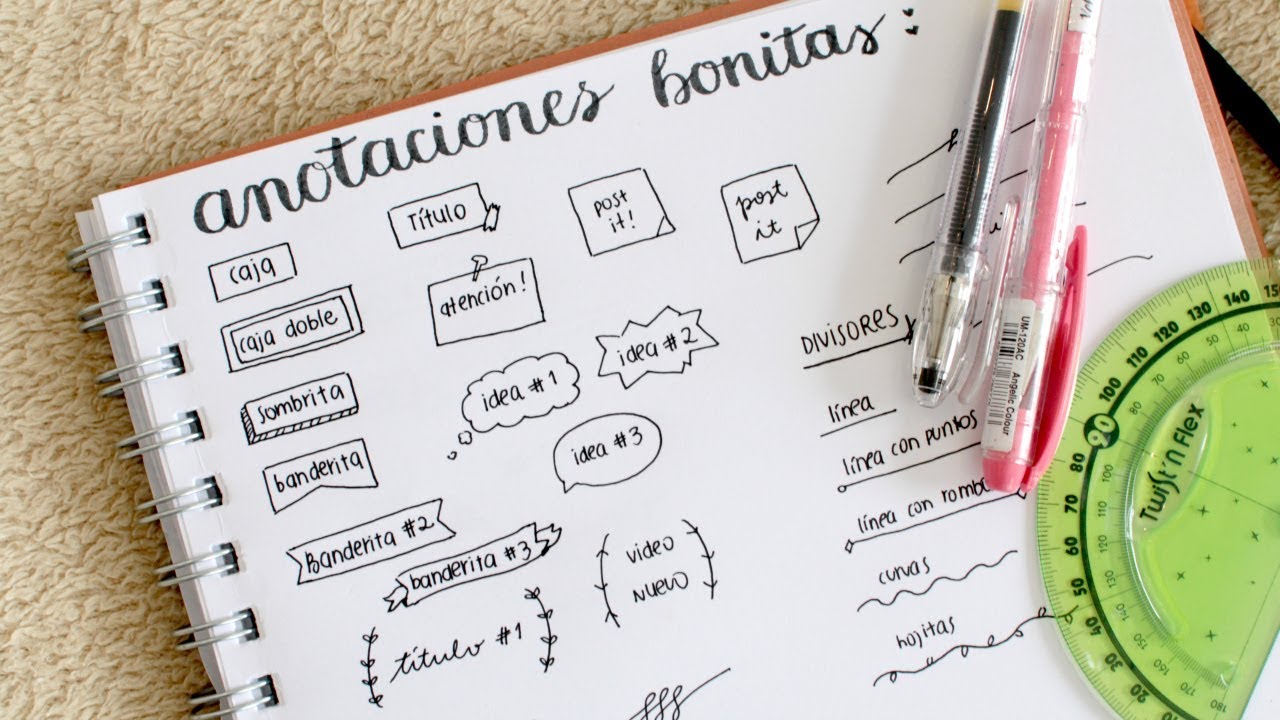 anotaciones bonitas:
caja
caja doble
sombrita
banderita
Banderita #2
banderita #3
título #1
Título
atención!
idea #1
idea #2
idea #3
video
NUEVO
post
it!
post
it
DIVISORES
línea
línea con puntos
línea con rombo
curvas
hojitas
UM-120AC
Angelic Colour
Twist 'n Flex
150
140
130
120
110
100
90
80
70
60
50
40
30
20
10
30
40
50
60
70
80
110
120
130
140
150
160
170
180